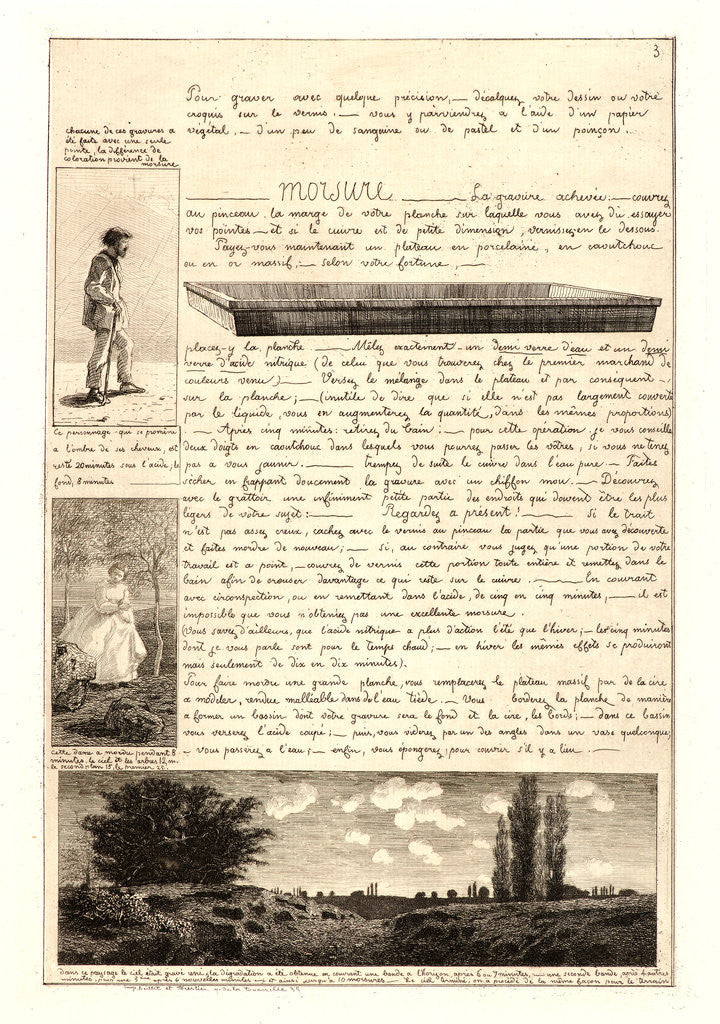 3
Pour graver avec quelque précision, — décalquez votre dessin ou votre
croquis sur le vernis. — vous y parviendrez à l'aide d'un papier
végétal. — d'un peu de sanguine ou de pastel et d'un poinçon.
chacune de ces gravures a
été faite avec une seule
pointe, la différence de
coloration provient de la
morsure
morsure — La gravure achevée: — couvrez
au pinceau la marge de votre planche sur laquelle vous avez dû essayer
vos pointes — et si le cuivre est de petite dimension, vernissez-en le dessous.
Payez-vous maintenant un plateau en porcelaine, en caoutchouc
ou en or massif, — selon votre fortune, —
placez-y la planche — Mêlez exactement — un demi verre d'eau et un demi
verre d'acide nitrique (de celui que vous trouverez chez le premier marchand de
couleurs venu) — Versez le mélange dans le plateau et par conséquent —
sur la planche; — (inutile de dire que si elle n'est pas largement couverte
par le liquide, vous en augmenterez la quantité, dans les mêmes proportions)
. — Après cinq minutes: retirez du bain: — pour cette opération je vous conseille
deux doigts en caoutchouc dans lesquels vous pourrez passer les vôtres, si vous ne tenez
pas à vous jaunir. — Trempez de suite le cuivre dans l'eau pure — Faites
sécher en frappant doucement la gravure avec un chiffon mou. — Découvrez
avec le grattoir une infiniment petite partie des endroits qui doivent être les plus
légers de votre sujet: — Regardez à présent! — Si le trait
n'est pas assez creux, cachez avec le vernis au pinceau la partie que vous avez découverte
et faites mordre de nouveau; — si, au contraire vous jugez qu'une portion de votre
travail est à point, — couvrez de vernis cette portion toute entière et remettez dans le
bain afin de creuser davantage ce qui reste sur le cuivre. — En couvrant
avec circonspection, ou en remettant dans l'acide, de cinq en cinq minutes, — il est
impossible que vous n'obteniez pas une excellente morsure.
(Vous savez d'ailleurs, que l'acide nitrique a plus d'action l'été que l'hiver; — les cinq minutes
dont je vous parle sont pour le temps chaud; — en hiver les mêmes effets se produiront
mais seulement de dix en dix minutes).
Pour faire mordre une grande planche, vous remplacerez le plateau massif par de la cire
à modeler, rendue malléable dans de l'eau tiède. — Vous borderez la planche de manière
à former un bassin dont votre gravure sera le fond et la cire, les bords; — dans ce bassin
vous verserez l'acide coupé; — puis, vous viderez par un des angles dans un vase quelconque;
— vous passerez à l'eau; — enfin, vous épongerez, pour couvrir s'il y a lieu. —
Ce personnage qui se promène
à l'ombre de ses cheveux, est
resté 20 minutes sous l'acide, le
fond, 8 minutes
Cette dame a mordu pendant 8
minutes, le ciel et les arbres 12 m.
le second plan 15, le premier 20.
dans ce paysage le ciel était gravé uni, la dégradation a été obtenue en couvrant une bande à l'horizon après 6 ou 7 minutes, — une seconde bande, après 4 autres
minutes, puis une 3ème après 6 nouvelles minutes — et ainsi jusqu'à 10 morsures — Le ciel terminé, on a procédé de la même façon pour le terrain